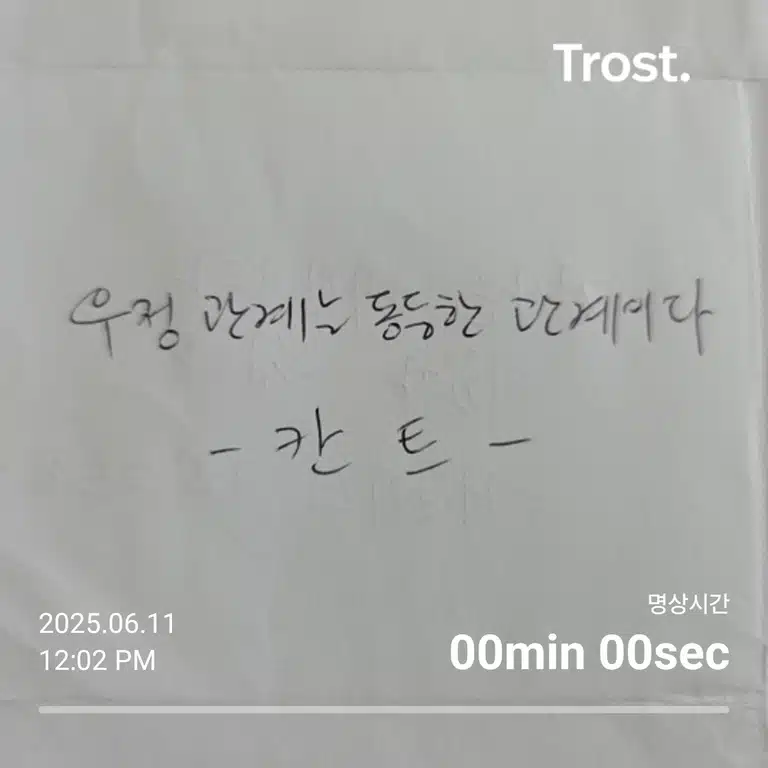 Trost.
우정 관계는 동등한 관계이다
- 칸 트 -
명상시간
2025.06.11
12:02 PM
00min 00sec